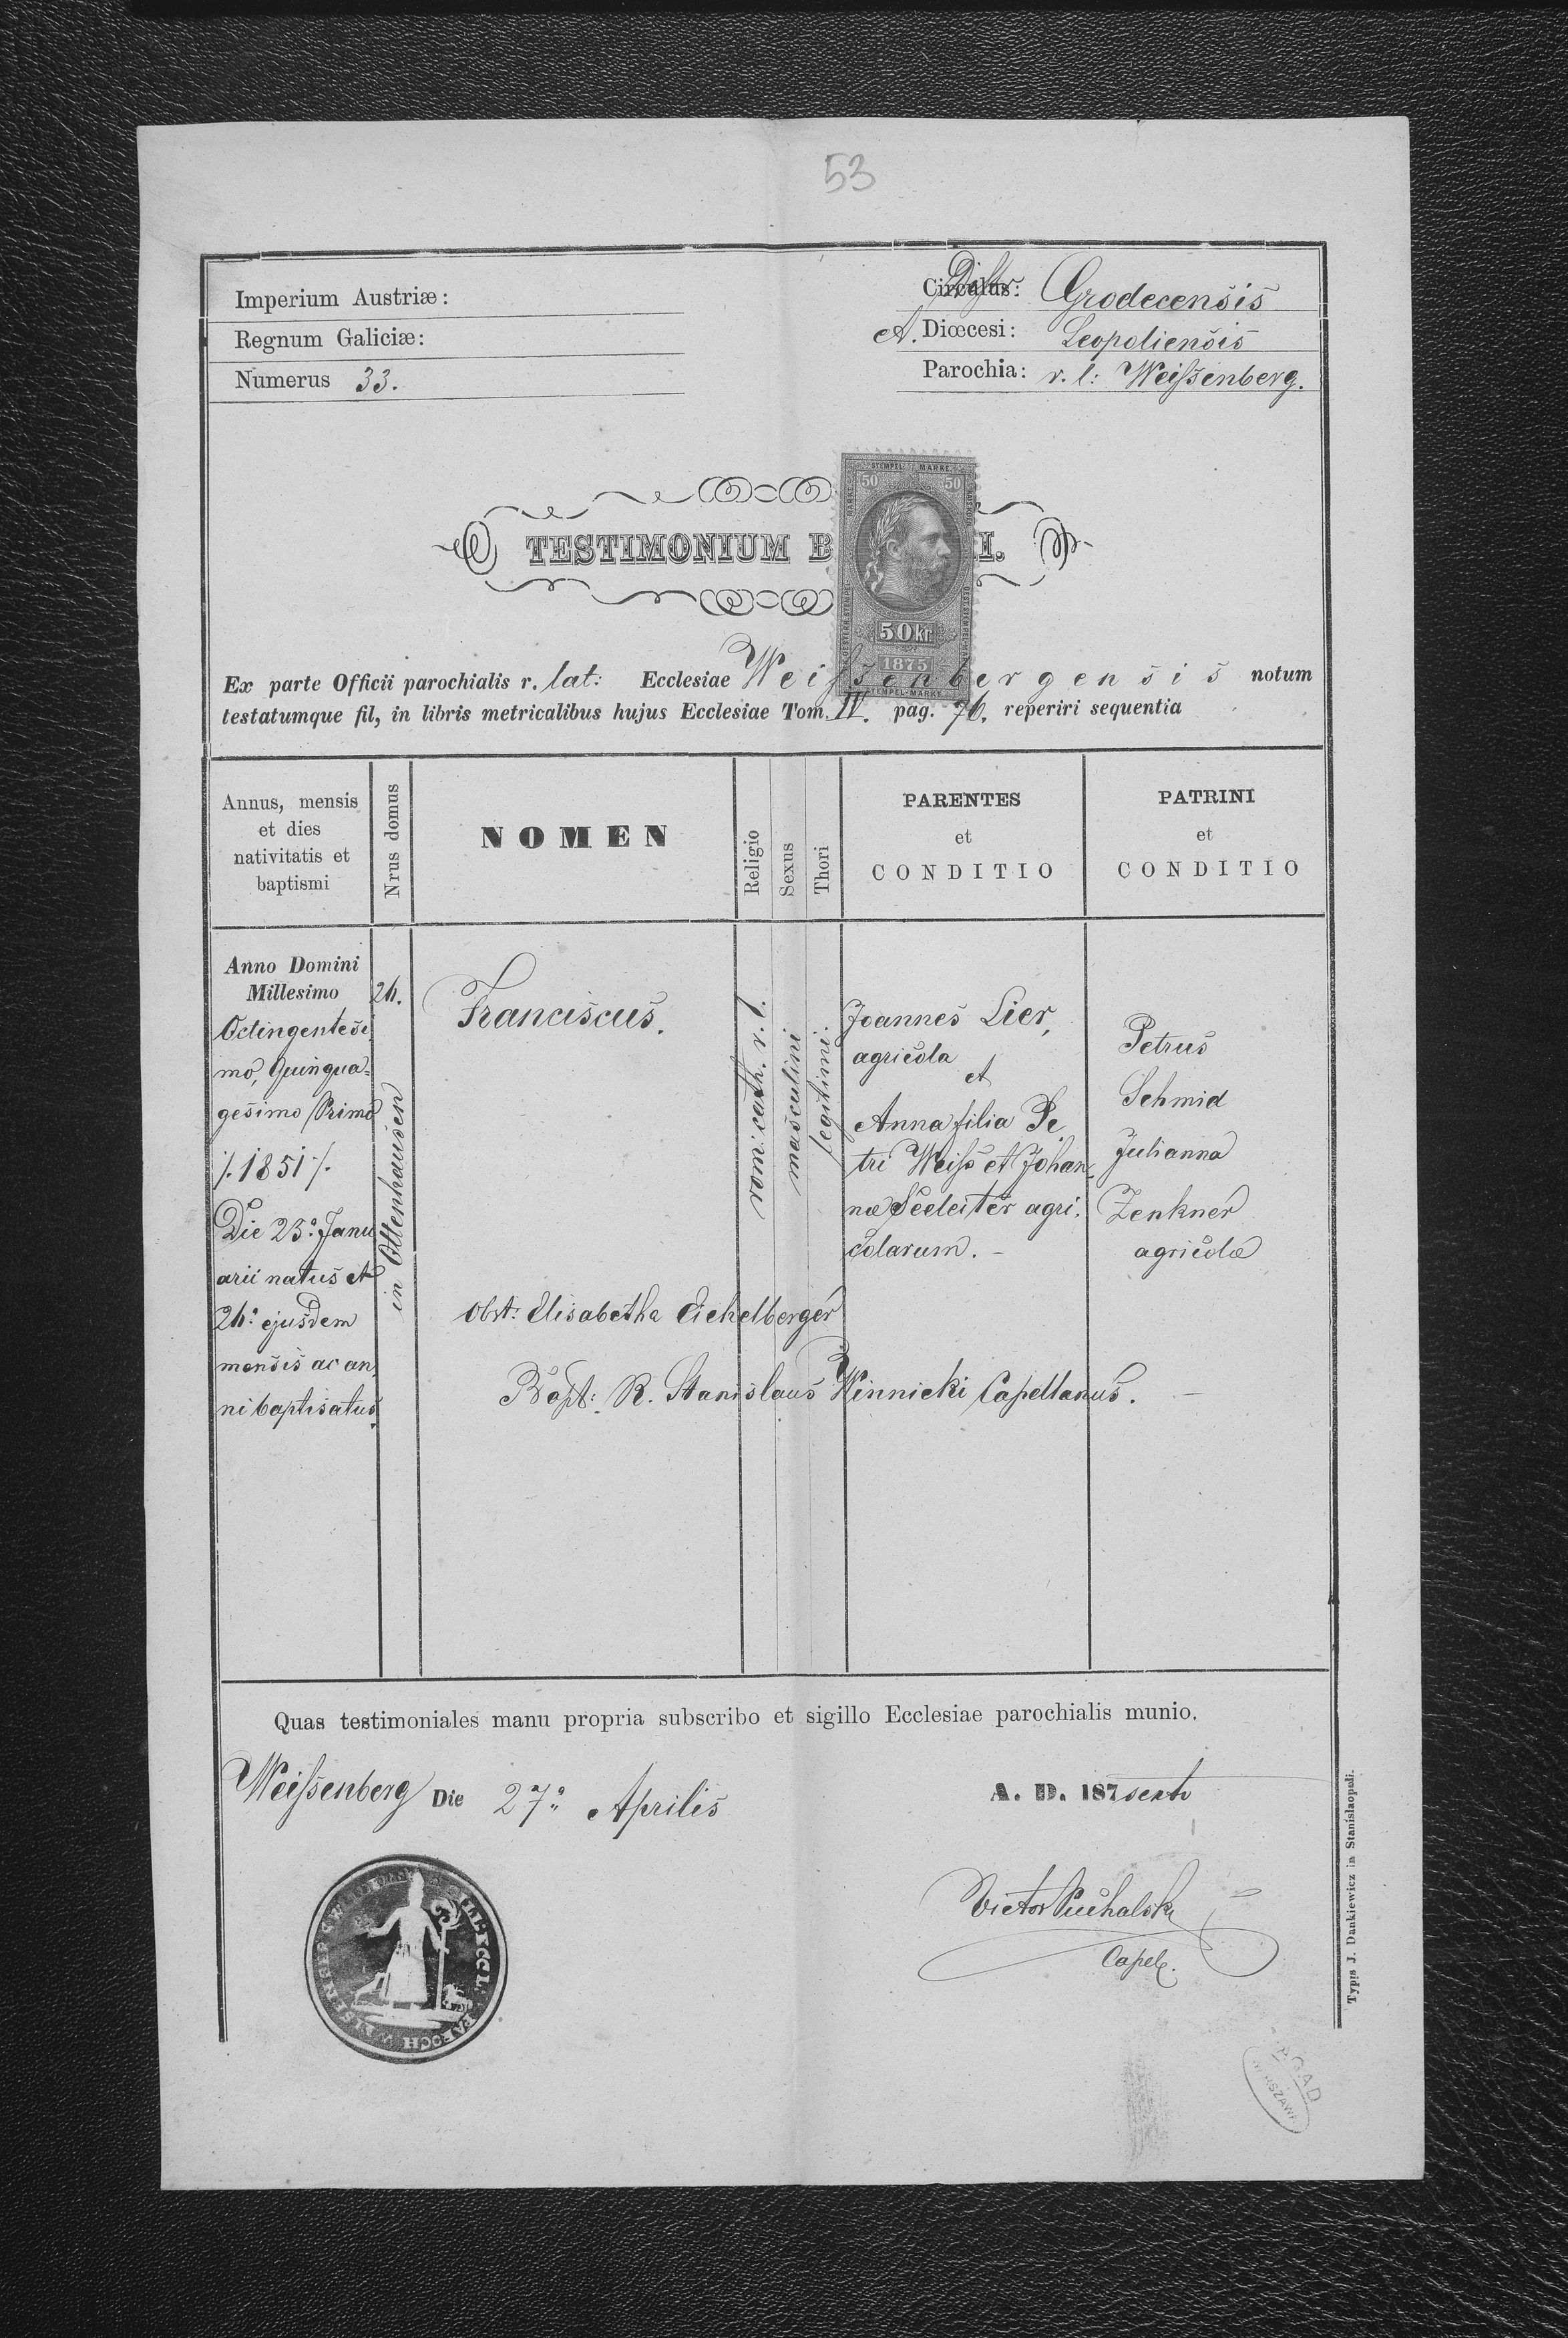 53
Imperium Austriæ:
Regnum Galiciæ:
Numerus 33.
Circulus: Distr. Grodecensis
A. Diœcesi: Leopoliensis
Parochia: r. l: Weißenberg.
TESTIMONIUM B I.
STEMPEL MARKE
50 50
50 kr
1875
STEMPEL-MARKE
Ex parte Officii parochialis r. lat: Ecclesiae Weißenbergensis notum
testatumque fil, in libris metricalibus hujus Ecclesiae Tom. IV. pag. 76. reperiri sequentia
Annus, mensis
et dies
nativitatis et
baptismi
Nrus domus
NOMEN
Religio
Sexus
Thori
PARENTES
et
CONDITIO
PATRINI
et
CONDITIO
Anno Domini
Millesimo
Octingentesi
mo, Quinqua=
gesimo Primo
/. 1851 /.
Die 23º Janu
arii natus et
24º ejusdem
mensis ac an
ni baptisatus
24.
in Ottenhausen
Franciscus.
rom: cath. r. l.
masculini
legitimi.
Joannes Lier,
agricola
et
Anna filia Pe
tri Weiß et Johan
næ Seeleiter agri.
colarum. –
Petrus
Schmid
Julianna
Zenkner
agricolæ
Obst: Elisabetha Eichelberger
Bapt: R. Stanislaus Winnicki Capellanus. –
Quas testimoniales manu propria subscribo et sigillo Ecclesiae parochialis munio.
Weißenberg Die 27º Aprilis A. D. 187 sexto
Victor Puchalski
Capell.
Typis J. Dankiewicz in Stanislaopoli.
AGAD
WARSZAWA